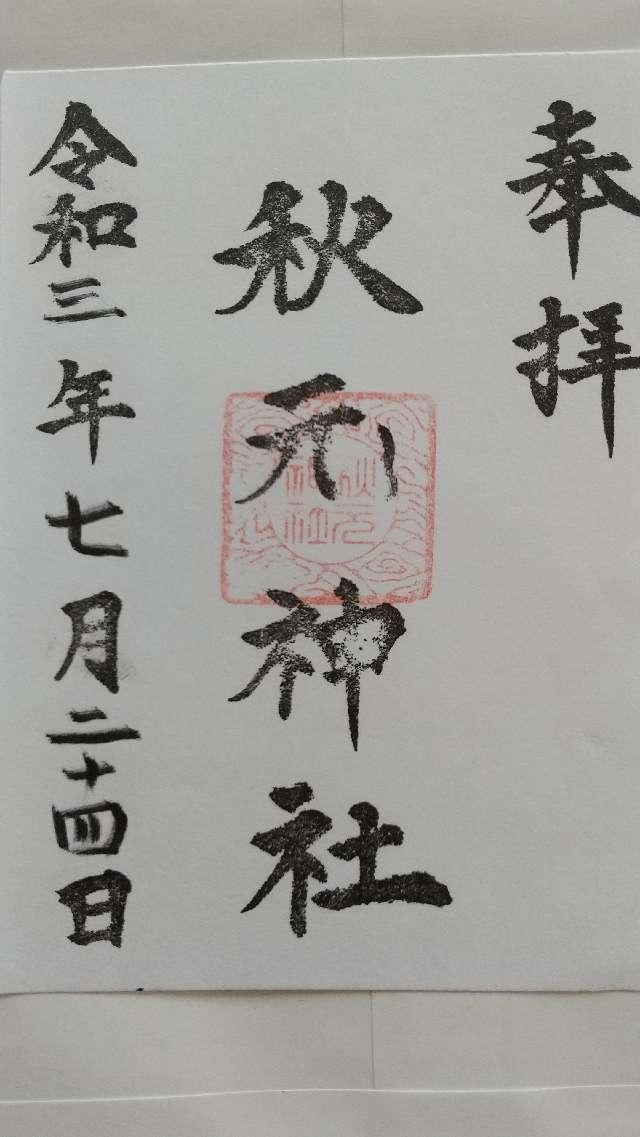 奉拝
秋元神社
秋元
神社
令和三年七月二十四日